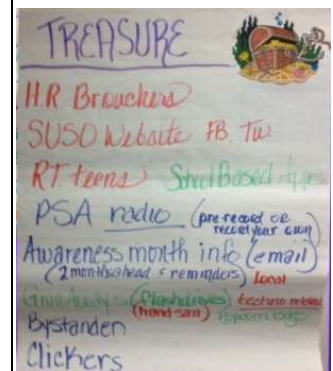 TREASURE
HR Brouchers
SUSO Website FB. Tw
RT. teens School Based
PSA radio (pre record or
record your own)
Awareness month info (email)
(2 months ahead & reminders) Local
Give Aways (flashdrives) techno
(hand san) Popcorn bags
Bystander
Clickers